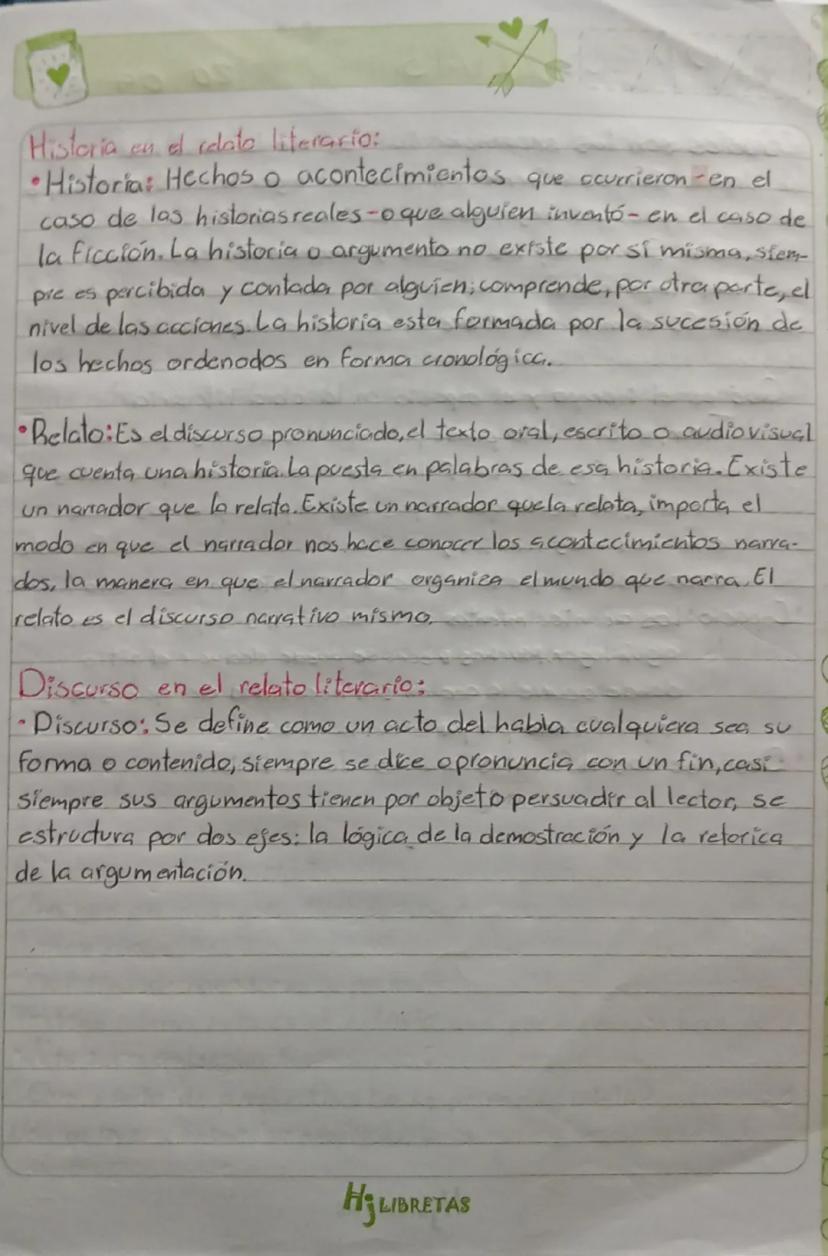 Historia en el relato literario:
• Historia: Hechos o acontecimientos que ocurrieron - en el
caso de las historias reales - o que alguien inventó - en el caso de
la ficción. La historia o argumento no existe por sí misma, siem-
pre es percibida y contada por alguien; comprende, por otra parte, el
nivel de las acciones. La historia esta formada por la sucesión de
los hechos ordenodos en forma cronológica.
• Relato: Es el discurso pronunciado, el texto oral, escrito o audiovisual
que cuenta una historia. La puesta en palabras de esa historia. Existe
un narrador que lo relata. Existe un narrador que la relata, importa el
modo en que el narrador nos hace conocer los acontecimientos narra-
dos, la manera en que el narrador organiza el mundo que narra. El
relato es el discurso narrativo mismo.
Discurso en el relato literario:
• Discurso: Se define como un acto del habla cualquiera sea su
forma o contenido, siempre se dice o pronuncia con un fin, casi
siempre sus argumentos tienen por objeto persuadir al lector, se
estructura por dos ejes: la lógica de la demostración y la retorica
de la argumentación.
Hj LIBRETAS